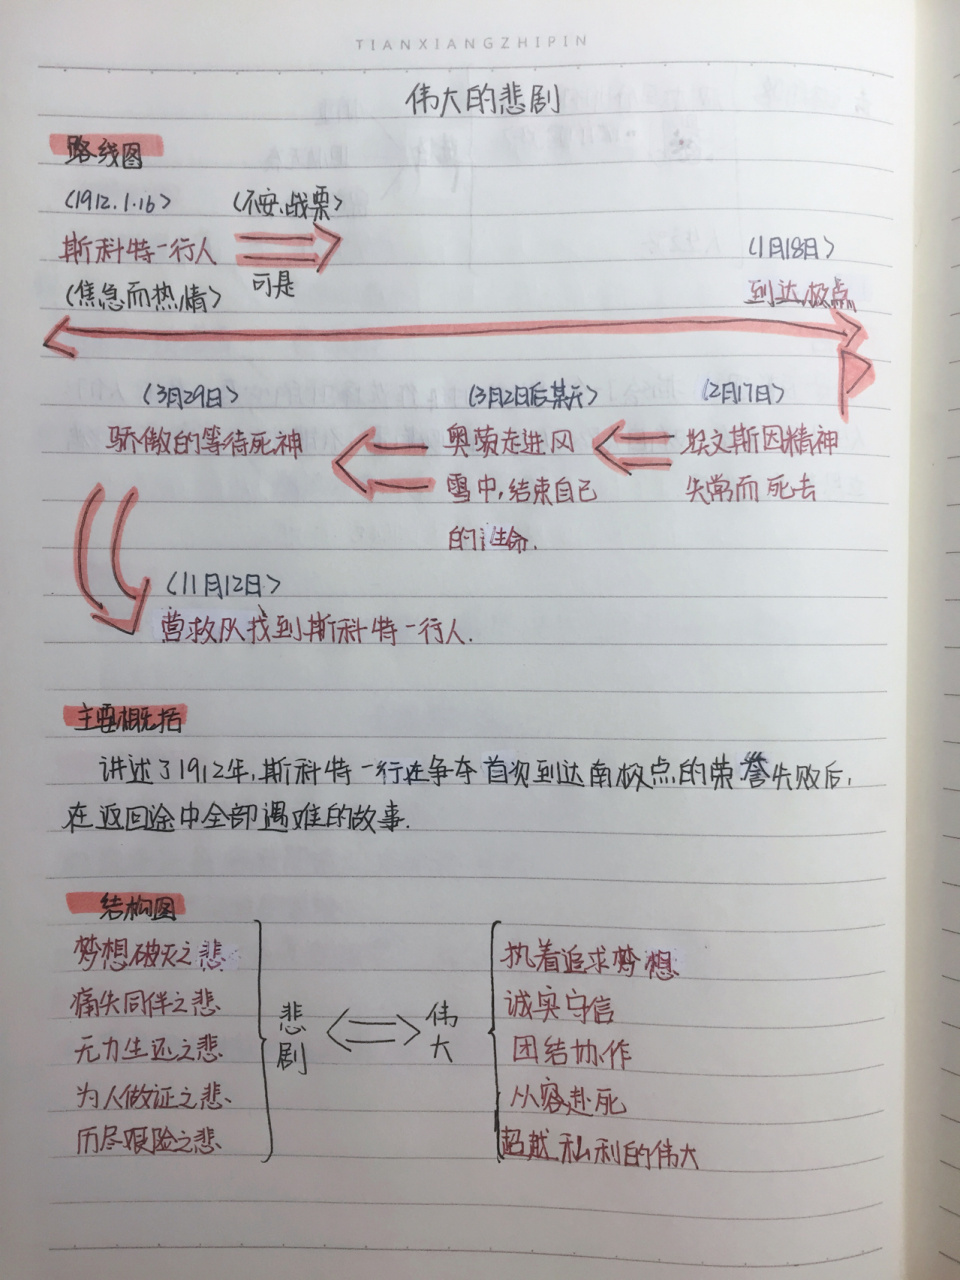 TIANXIANGZHIPIN
伟大的悲剧
路线图
(1912.1.16) (不安、战栗)
斯科特一行人
(1月18日)
(焦急而热情) 可是
到达极点
(3月29日) (3月2日后某天) (2月17日)
骄傲的等待死神 奥茨走进风 埃文斯因精神
雪中,结束自己 失常而死去
的生命.
(11月12日)
营救队找到斯科特一行人.
主要概括
讲述了1912年,斯科特一行在争夺首次到达南极点的荣誉失败后,
在返回途中全部遇难的故事.
结构图
梦想破灭之悲
痛失同伴之悲
无力生还之悲
为人做证之悲、
历尽艰险之悲
悲剧
伟大
执着追求梦想
诚实守信
团结协作
从容赴死
超越私利的伟大